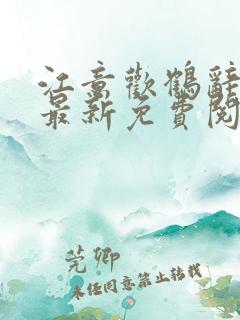 江意歡鶴辭
最新免費閱
莞卿
未任同意禁止转载